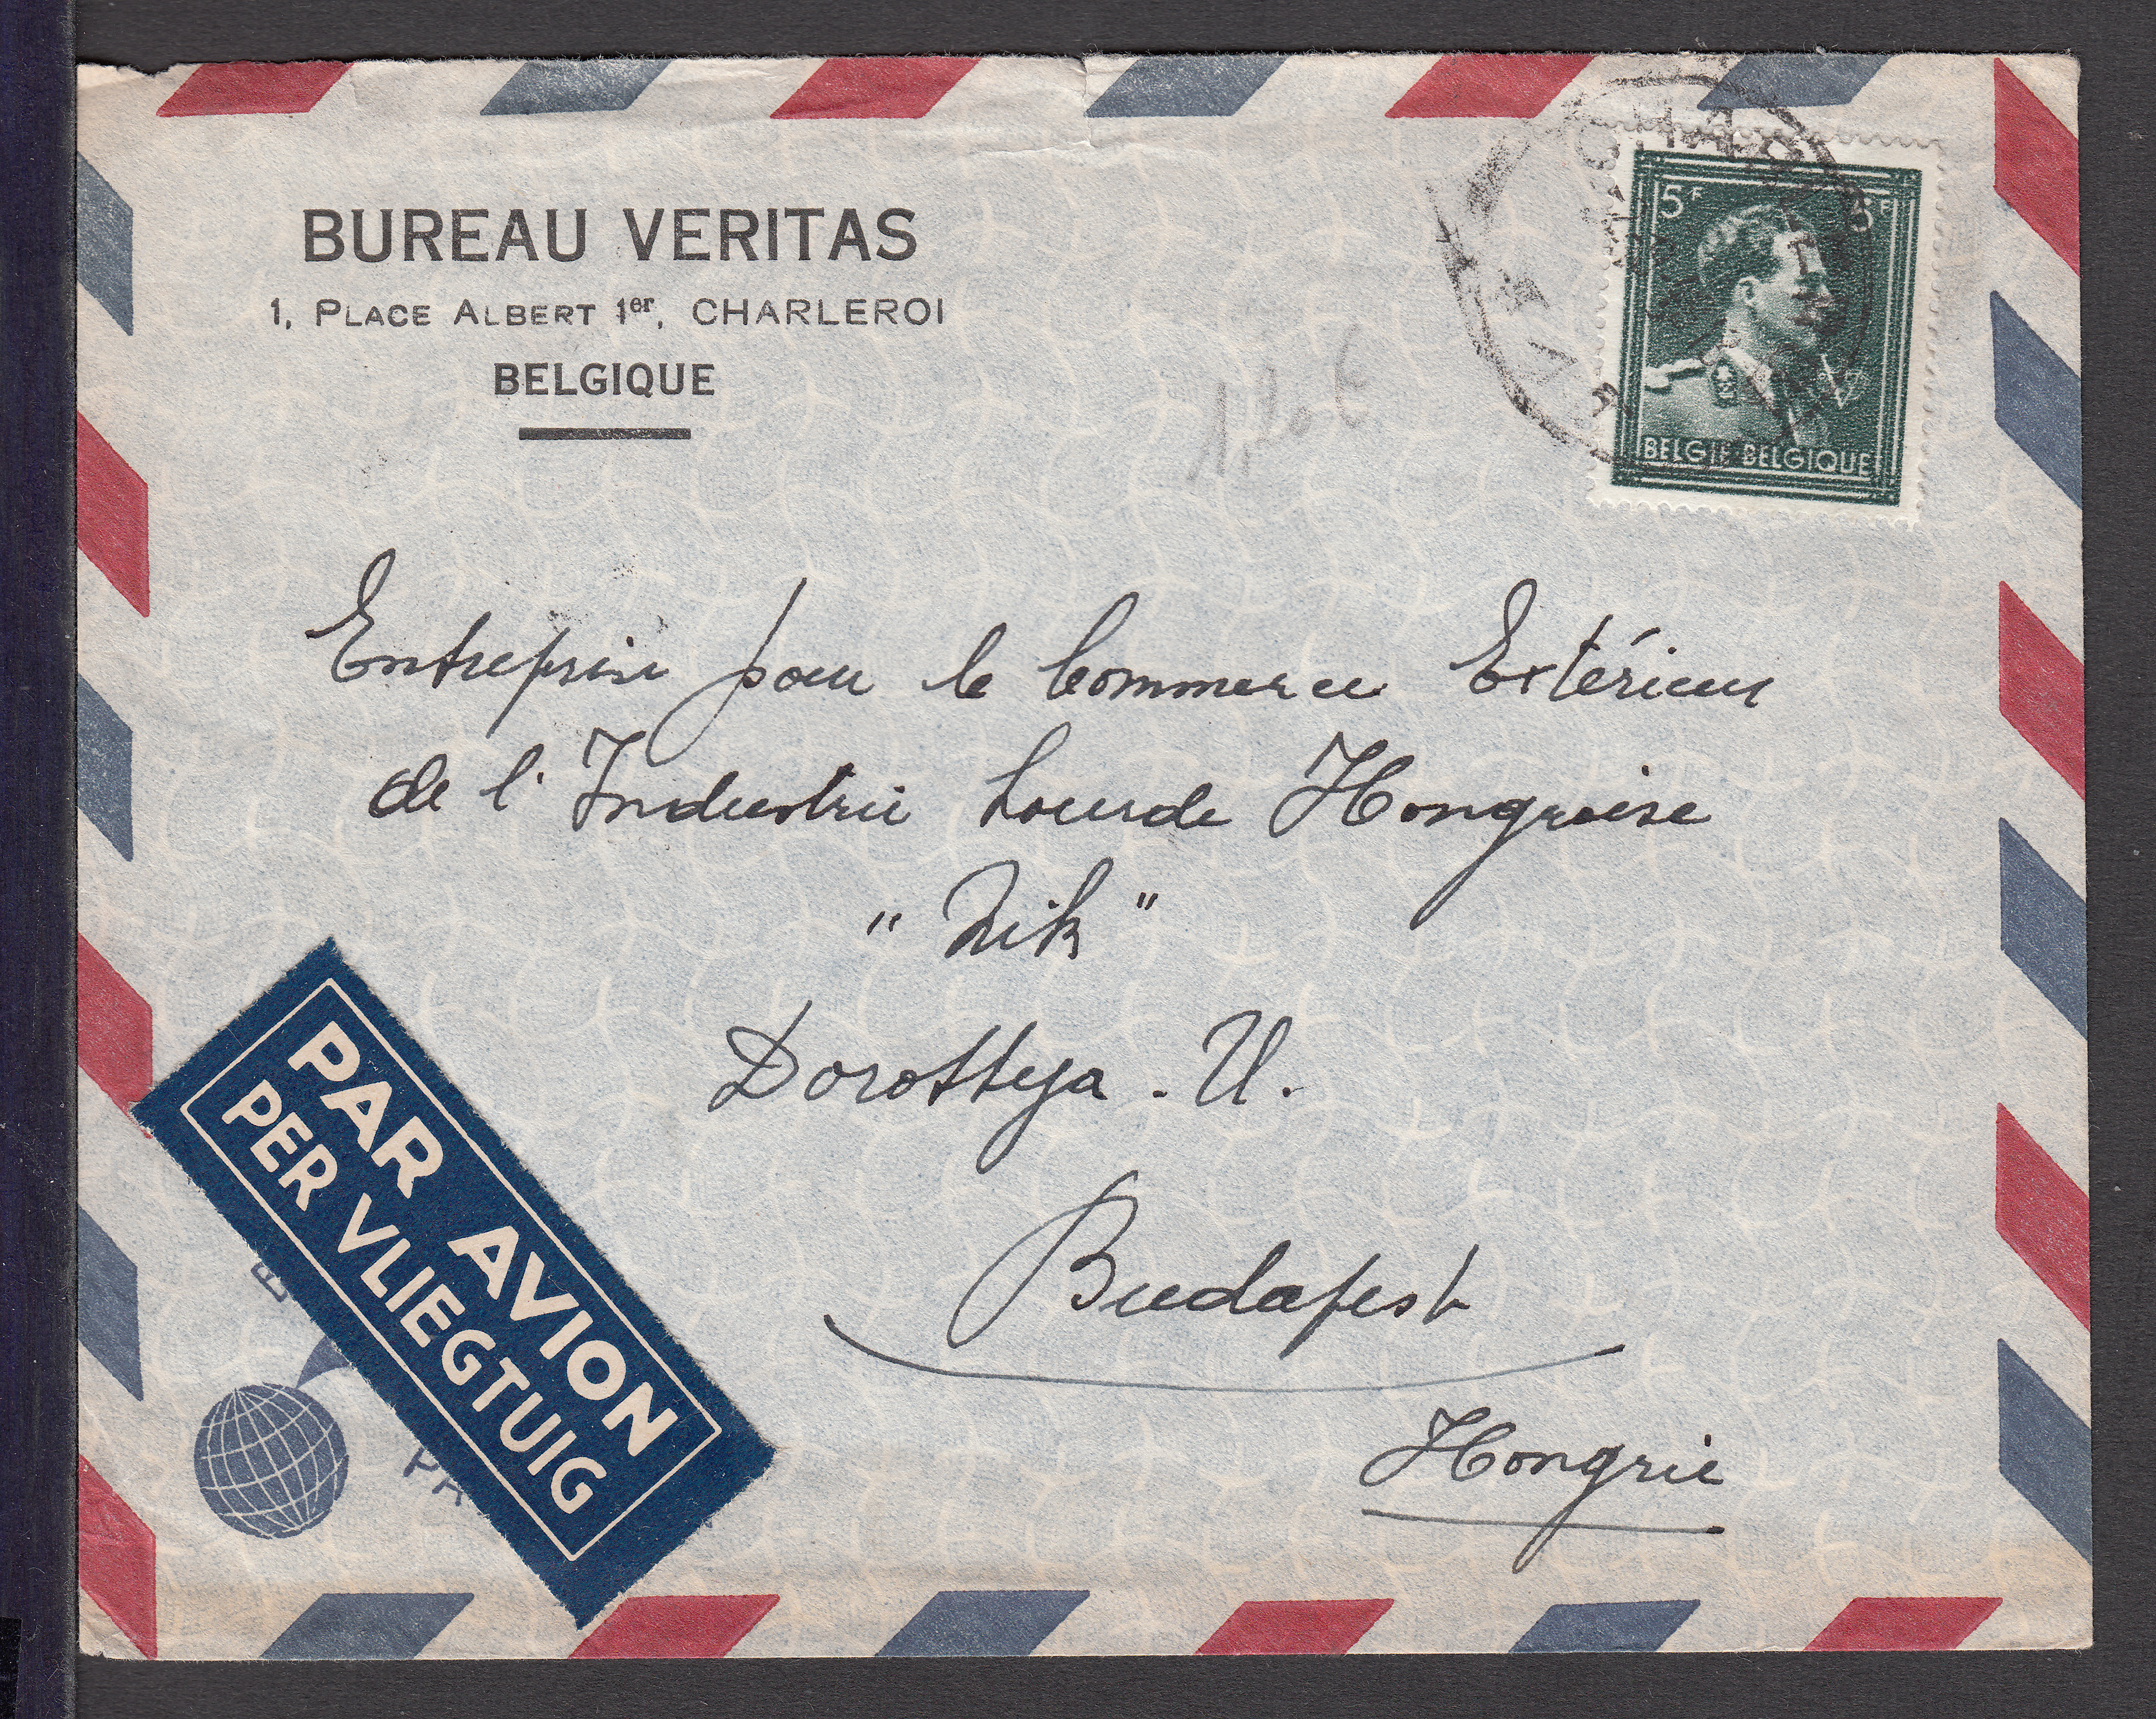 BUREAU VERITAS
1, PLACE ALBERT 1er, CHARLEROI
BELGIQUE
5F 5F
BELGIE BELGIQUE
Entreprise pour le Commerce Extérieur
de l'Industrie Lourde Hongroise
"Nik"
Dorottya. U.
Budapest
Hongrie
PAR AVION
PER VLIEGTUIG
PA